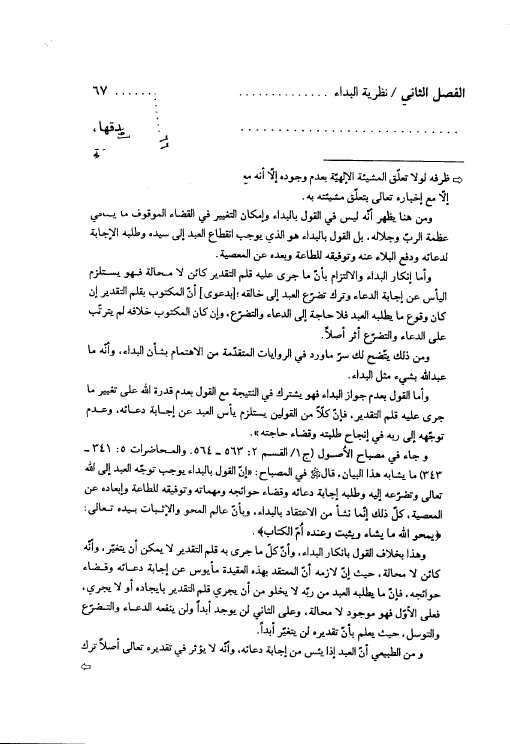 الفصل الثاني / نظرية البداء .............. ٦٧ .......
............................ يدقها،
⇦ ظرفه لولا تعلّق المشيئة الإلهيّة بعدم وجوده إلّا أنه مع
إلّا مع إخباره تعالى بتعلّق مشيئته به.
ومن هنا يظهر أنّه ليس في القول بالبداء وإمكان التغيير في القضاء الموقوف ما ينافي
عظمة الربّ وجلاله، بل القول بالبداء هو الذي يوجب انقطاع العبد إلى سيده وطلبه الإجابة
لدعائه ودفع البلاء عنه وتوفيقه للطاعة وبعده عن المعصية.
وأما إنكار البداء والالتزام بأنّ ما جرى عليه قلم التقدير كائن لا محالة فهو يستلزم
اليأس عن إجابة الدعاء وترك تضرّع العبد إلى خالقه؛ [بدعوى] أنّ المكتوب بقلم التقدير إن
كان وقوع ما يطلبه العبد فلا حاجة إلى الدعاء والتضرّع، وإن كان المكتوب خلافه لم يترتّب
على الدعاء والتضرّع أثر أصلاً.
ومن ذلك يتّضح لك سرّ ماورد في الروايات المتقدّمة من الاهتمام بشأن البداء، وأنّه ما
عبدالله بشيء مثل البداء.
وأما القول بعدم جواز البداء فهو يشترك في النتيجة مع القول بعدم قدرة الله على تغيير ما
جرى عليه قلم التقدير، فإنّ كلّاً من القولين يستلزم يأس العبد عن إجابة دعائه، وعدم
توجّهه إلى ربه في إنجاح طلبته وقضاء حاجته».
و جاء في مصباح الأصول (ج ١/ القسم ٢: ٥٦٣ ـ ٥٦٤. والمحاضرات ٥: ٣٤١ ـ
٣٤٣) ما يشابه هذا البيان، قال في المصباح: «إنّ القول بالبداء يوجب توجّه العبد إلى الله
تعالى وتضرّعه إليه وطلبه إجابة دعائه وقضاء حوائجه ومهماته وتوفيقه للطاعة وإبعاده عن
المعصية، كلّ ذلك إنّما نشأ من الاعتقاد بالبداء، وبأنّ عالم المحو والإثبات بيده تعالى:
﴿يمحو الله ما يشاء ويثبت وعنده أمّ الكتاب﴾.
وهذا بخلاف القول بانكار البداء، وأنّ كلّ ما جرى به قلم التقدير لا يمكن أن يتغيّر، وأنّه
كائن لا محالة، حيث إنّ لازمه أنّ المعتقد بهذه العقيدة مأيوس عن إجابة دعائه وقضاء
حوائجه، فإنّ ما يطلبه العبد من ربّه لا يخلو من أن يجري قلم التقدير بايجاده أو لا يجري،
فعلى الأوّل فهو موجود لا محالة، وعلى الثاني لن يوجد أبداً ولن ينفعه الدعاء والتضرّع
والتوسل، حيث يعلم بأنّ تقديره لن يتغيّر أبداً.
و من الطبيعي أنّ العبد إذا يئس من إجابة دعائه، وأنّه لا يؤثر في تقديره تعالى أصلاً ترك
⇦